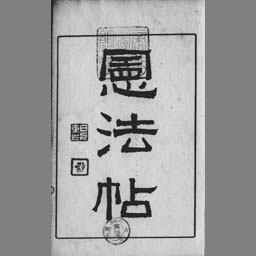 憲法帖